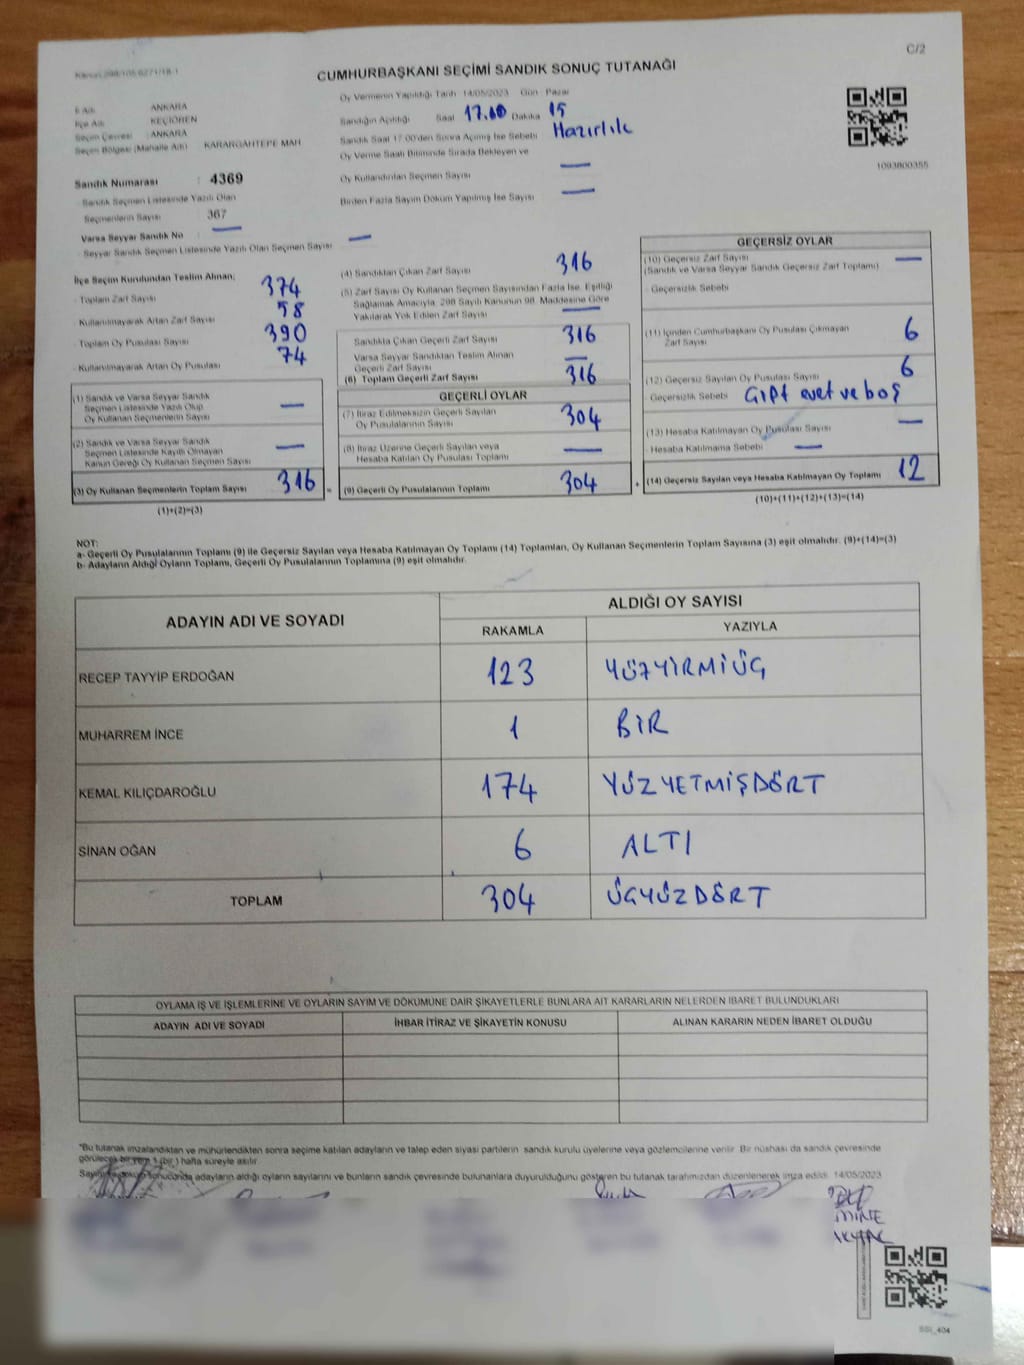 C/2
Kanun:298/105,6271/18-1
CUMHURBAŞKANI SEÇİMİ SANDIK SONUÇ TUTANAĞI
İl Adı : ANKARA
İlçe Adı : KEÇİÖREN
Seçim Çevresi : ANKARA
Seçim Bölgesi (Mahalle Adı) : KARARGAHTEPE MAH
Oy Vermenin Yapıldığı Tarih 14/05/2023 Gün Pazar
Sandığın Açıldığı Saat 17.00 Dakika 15
Sandık Saat 17:00'den Sonra Açılmış İse Sebebi Hazırlık
Oy Verme Saati Bitiminde Sırada Bekleyen ve
Oy Kullandırılan Seçmen Sayısı —
Birden Fazla Sayım Döküm Yapılmış İse Sayısı —
1093800355
Sandık Numarası : 4369
- Sandık Seçmen Listesinde Yazılı Olan
Seçmenlerin Sayısı : 367
Varsa Seyyar Sandık No : —
- Seyyar Sandık Seçmen Listesinde Yazılı Olan Seçmen Sayısı : —
İlçe Seçim Kurulundan Teslim Alınan;
- Toplam Zarf Sayısı 374
- Kullanılmayarak Artan Zarf Sayısı 58
- Toplam Oy Pusulası Sayısı 390
- Kullanılmayarak Artan Oy Pusulası 74
(1) Sandık ve Varsa Seyyar Sandık
Seçmen Listesinde Yazılı Olup
Oy Kullanan Seçmenlerin Sayısı —
(2) Sandık ve Varsa Seyyar Sandık
Seçmen Listesinde Kayıtlı Olmayan
Kanun Gereği Oy Kullanan Seçmen Sayısı —
(3) Oy Kullanan Seçmenlerin Toplam Sayısı 316 =
(1)+(2)=(3)
(4) Sandıktan Çıkan Zarf Sayısı 316
(5) Zarf Sayısı Oy Kullanan Seçmen Sayısından Fazla İse, Eşitliği
Sağlamak Amacıyla, 298 Sayılı Kanunun 98. Maddesine Göre
Yakılarak Yok Edilen Zarf Sayısı —
Sandıkta Çıkan Geçerli Zarf Sayısı 316
Varsa Seyyar Sandıktan Teslim Alınan
Geçerli Zarf Sayısı —
(6) Toplam Geçerli Zarf Sayısı 316
GEÇERLİ OYLAR
(7) İtiraz Edilmeksizin Geçerli Sayılan
Oy Pusulalarının Sayısı 304
(8) İtiraz Üzerine Geçerli Sayılan veya
Hesaba Katılan Oy Pusulası Toplamı —
(9) Geçerli Oy Pusulalarının Toplamı 304 +
GEÇERSİZ OYLAR
(10) Geçersiz Zarf Sayısı —
(Sandık ve Varsa Seyyar Sandık Geçersiz Zarf Toplamı)
- Geçersizlik Sebebi
(11) İçinden Cumhurbaşkanı Oy Pusulası Çıkmayan
Zarf Sayısı 6
(12) Geçersiz Sayılan Oy Pusulası Sayısı 6
- Geçersizlik Sebebi Çift evet ve boş
(13) Hesaba Katılmayan Oy Pusulası Sayısı —
- Hesaba Katılmama Sebebi —
(14) Geçersiz Sayılan veya Hesaba Katılmayan Oy Toplamı 12
(10)+(11)+(12)+(13)=(14)
NOT:
a- Geçerli Oy Pusulalarının Toplamı (9) ile Geçersiz Sayılan veya Hesaba Katılmayan Oy Toplamı (14) Toplamları, Oy Kullanan Seçmenlerin Toplam Sayısına (3) eşit olmalıdır. (9)+(14)=(3)
b- Adayların Aldığı Oyların Toplamı, Geçerli Oy Pusulalarının Toplamına (9) eşit olmalıdır.
ADAYIN ADI VE SOYADI
ALDIĞI OY SAYISI
RAKAMLA YAZIYLA
RECEP TAYYİP ERDOĞAN 123 YÜZYİRMİÜÇ
MUHARREM İNCE 1 BİR
KEMAL KILIÇDAROĞLU 174 YÜZYETMİŞDÖRT
SİNAN OĞAN 6 ALTI
TOPLAM 304 ÜÇYÜZDÖRT
OYLAMA İŞ VE İŞLEMLERİNE VE OYLARIN SAYIM VE DÖKÜMÜNE DAİR ŞİKAYETLERLE BUNLARA AİT KARARLARIN NELERDEN İBARET BULUNDUKLARI
ADAYIN ADI VE SOYADI İHBAR İTİRAZ VE ŞİKAYETİN KONUSU ALINAN KARARIN NEDEN İBARET OLDUĞU
*Bu tutanak imzalandıktan ve mühürlendikten sonra seçime katılan adayların ve talep eden siyasi partilerin sandık kurulu üyelerine veya gözlemcilerine verilir. Bir nüshası da sandık çevresinde
görülecek bir yere 1 (bir) hafta süreyle asılır.
Sayım döküm sonucunda adayların aldığı oyların sayılarını ve bunların sandık çevresinde bulunanlara duyurulduğunu gösteren bu tutanak tarafımızdan düzenlenerek imza edildi. 14/05/2023
SSI_404